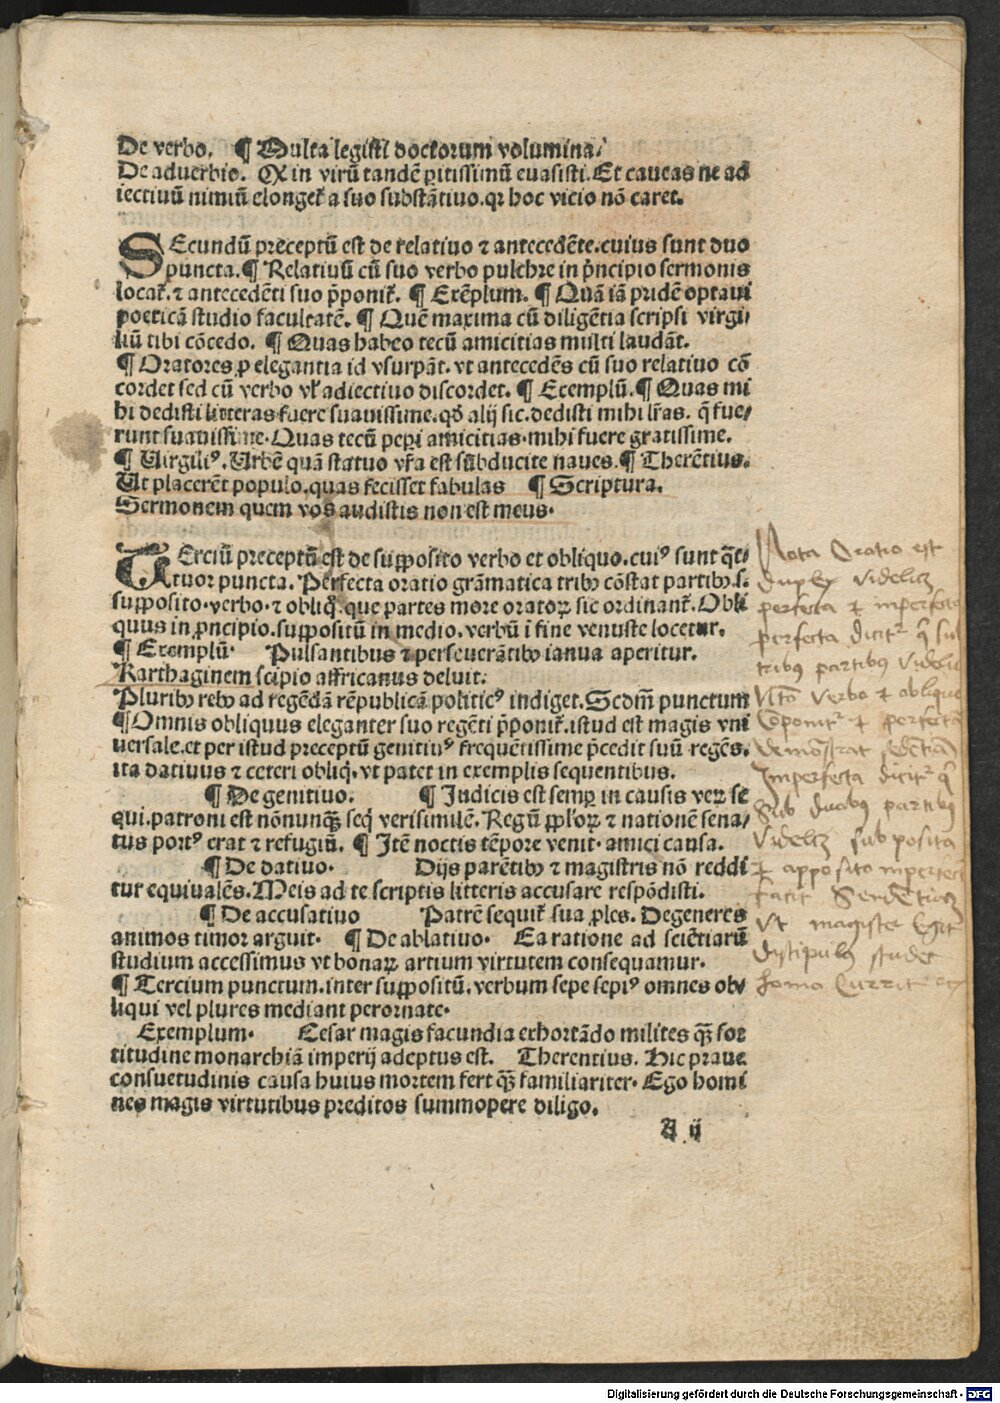 De verbo. ¶ Multa legisti doctorum volumina/
De aduerbio. Qꝫ in virū tandē ꝑitissimū euasisti. Et caueas ne ad
iectiuū nimiū elonget̄ a suo substātiuo. qꝛ hoc vicio nō caret.
SEcundū preceptū est de relatiuo ⁊ antecedēte. cuius sunt duo
puncta. ¶ Relatiuū cū suo verbo pulchre in pͥncipio sermonis
locat̄. ⁊ antecedēti suo p̄ponit̄. ¶ Exēplum. ¶ Quā iā pridē optaui
poeticā studio facultatē. ¶ Quē maxima cū diligētia scripsi virgi/
liū tibi cōcedo. ¶ Quas habeo tecū amicitias multi laudāt.
¶ Oratores ꝓ elegantia id vsurpāt. vt antecedēs cū suo relatiuo cō
cordet sed cū verbo vl̓ adiectiuo discordet. ¶ Exemplū. ¶ Quas mi
hi dedisti litteras fuere suauissime. qd̓ alij sic. dedisti mihi lr̄as. q̄ fue/
runt suauissime. Quas tecū peꝑi amicitias. mihi fuere gratissime.
¶ Virgiliꝰ. Vrbē quā statuo vr̄a est sūbducite naues. ¶ Therētius.
Ut placerēt populo. quas fecisset fabulas ¶ Scriptura.
Sermonem quem vos audistis non est meus.
TErciū preceptū est de supposito verbo et obliquo. cuiꝰ sunt q̄t/
tuor puncta. Perfecta oratio grāmatica tribꝫ cōstat partibꝫ. s.
supposito. verbo. ⁊ obliqͦ. que partes more oratoꝝ sic ordinant̄. Obli
quus in pͥncipio. suppositū in medio. verbū ī fine venuste locetur.
¶ Exemplū. Pulsantibus ⁊ perseuerātibꝫ ianua aperitur.
Karthaginem scipio affricanus deluit.
Pluribꝫ rebꝫ ad regēdā rēpublicā politicꝰ indiget. Scd̓m punctum
¶ Omnis obliquus eleganter suo regēti p̄ponit̄. istud est magis vni
uersale. et per istud preceptū genitiuꝰ frequētissime p̄cedit suū regēs.
ita datiuus ⁊ ceteri obliqͥ. vt patet in exemplis sequentibus.
¶ De genitiuo. ¶ Iudicis est semꝑ in causis veꝝ se
qui. patroni est nōnunqꝫ seqͥ verisimilē. Regū pplōꝝ ⁊ nationē sena/
tus portꝰ erat ⁊ refugiū. ¶ Itē noctis tēpore venit. amici causa.
¶ De datiuo. Dijs parētibꝫ ⁊ magistris nō reddi
tur equiualēs. Meis ad te scriptis litteris accusare respōdisti.
¶ De accusatiuo Patrē sequit̄ sua ꝓles. Degeneres
animos timor arguit. ¶ De ablatiuo. Ea ratione ad sciētiarū
studium accessimus vt bonaꝝ artium virtutem consequamur.
¶ Tercium punctum. inter suppositū. verbum sepe sepiꝰ omnes ob/
liqui vel plures mediant perornate.
Exemplum. Cesar magis facundia exhortādo milites qꝫ for
titudine monarchiā imperij adeptus est. Therentius. Hic praue
consuetudinis causa huius mortem fert qꝫ familiariter. Ego homi
nes magis virtutibus preditos summopere diligo.
A ij
Nota Oratio est
duplex videlicꝫ
perfecta et inperfecta
perfecta dicit̄ q̄ sub
tribus partibus
verbo et obliquo
Componit̄ et perfectā
demonstrat sentētiā
Imperfecta dicit̄ q̄
sub duabus partibus
videlicꝫ subposito
et apposito imperfectā
facit Sententiā
Ut magister legit
discipulus studet
homo Currit
Digitalisierung gefördert durch die Deutsche Forschungsgemeinschaft - DFG